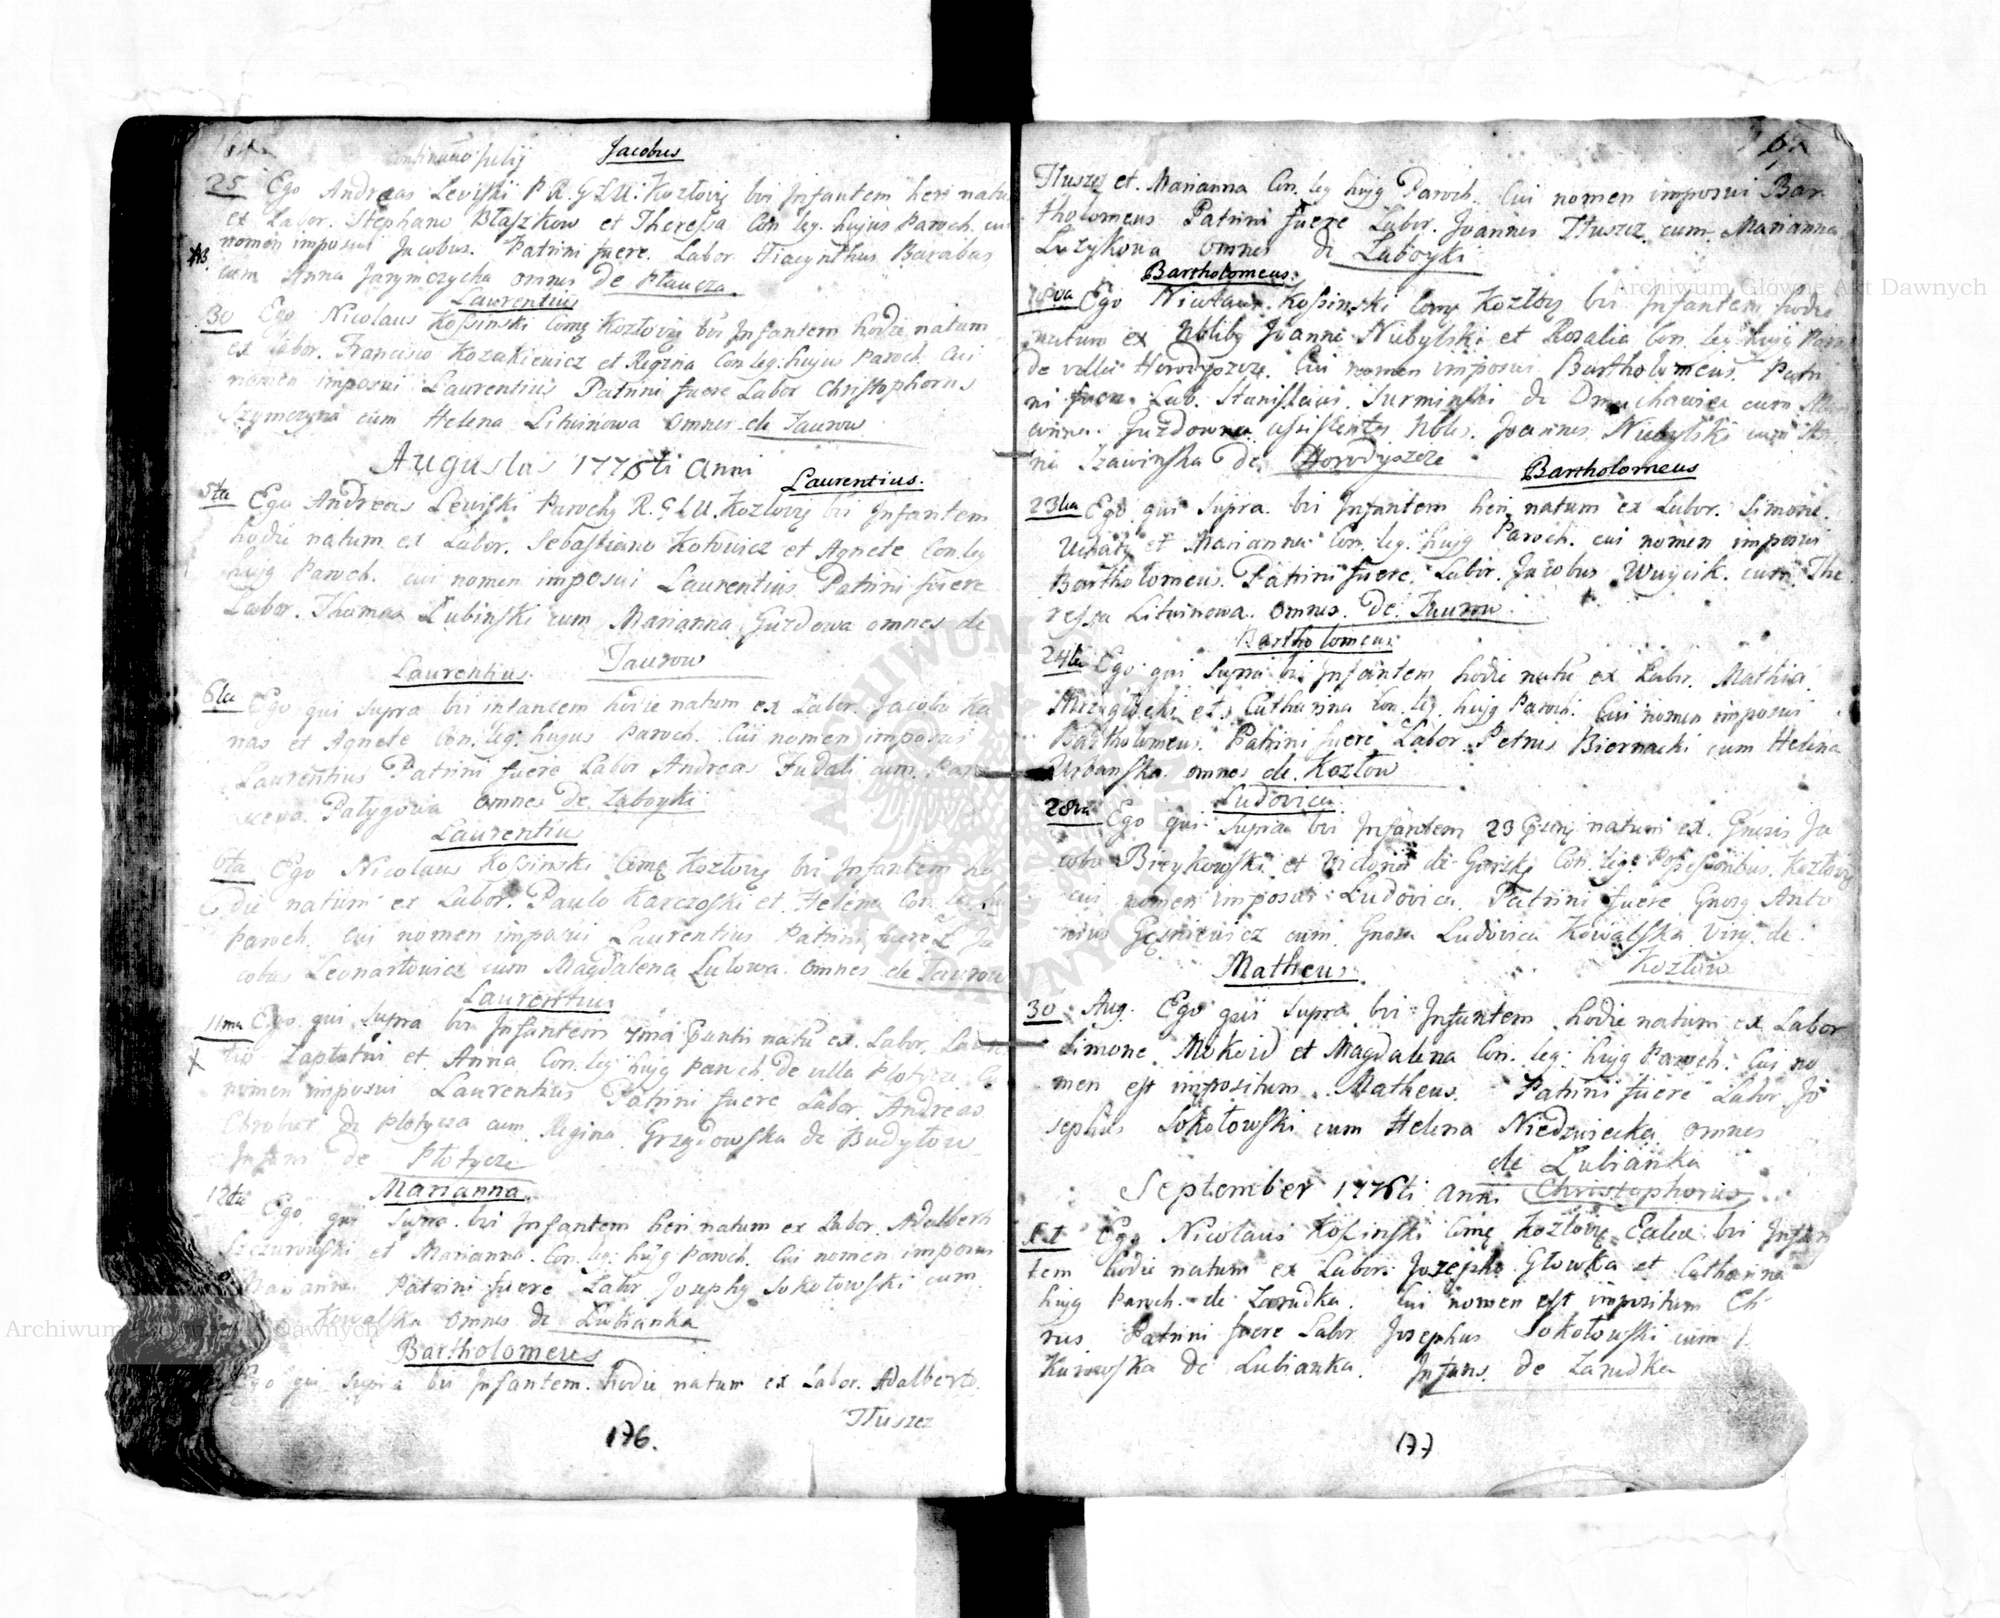 continuatio Julij Jacobus
25 Ego Andreas Leviski P R. G L U. Kozłovię bti Infantem heri natu
ex Labor. Stephano Błaszkow et Theressa Con leg. hujus Paroch cui
nomen imposui Jacobus. Patrini fuere. Labor Hiacynthus Barabas
cum Anna Jarymczycha omnes de Płaucza.
Laurentius
30 Ego Nicolaus Kossinski Comę Kozłovię bti Infantem hodie natum
ex Labor. Francisco Kozakiewicz et Regina Con leg: hujus Paroch Cui
nomen imposui Laurentius Patrini fuere Labor Christophorus
Szymczyna cum Helena Litwinowa omnes de Taurow
Augustus 1776ti Anni Laurentius.
5ta Ego Andreas Leviski Parochy R. G L U. Kozłovię bti Infantem
hodie natum ex Labor. Sebastiano Kotowicz et Agnete Con leg
hujg Paroch. cui nomen imposui Laurentius. Patrini fuere
Labor. Thomas Lubinski cum Marianna Guzdowa omnes de
Taurow
Laurentius.
6ta Ego qui supra bti infantem hodie natum ex Labor. Jacobo Ka
nas et Agnete Con. leg: hujus Paroch. Cui nomen imposui
Laurentius Patrini fuere Labor Andreas Fudali cum Para
scena Patygowa omnes de Zaboyki
Laurentius
6ta Ego Nicolaus Kossinski Comę Kozłovię bti Infantem ho
die natum ex Labor. Paulo Karczoski et Helena Con. leg.
Paroch. cui nomen imposui Laurentius Patrini fuere L Ja
cobus Leonartowicz cum Magdalena Lulowa omnes de Taurow
Laurentius
11ma Ego qui supra bti Infantem 7ma natū ex Labor. Lauren
tio Zaplatni et Anna Con. leg hujg Paroch. De villa Płotycze.
nomen imposui Laurentius Patrini fuere Labor. Andreas
Chrobur de Płotycza cum Regina Grzędowska de Budyłow
Infans de Płotycze
Marianna
12ta Ego qui supra bti Infantem heri natum ex Labor. Adalberti
Szczurowski et Marianna Con. leg: hujg Paroch. Cui nomen imposui
Marianna. Patrini fuere Labr Josephy Sokołowski cum
Kowalska omnes de Lubianka
Bartholomeus
Ego qui supra bti Infantem hodie natum ex Labor. Adalberto
Tłuszcz
176.
Tłuszcz et Marianna Con. leg hujg Paroch. Cui nomen imposui Bar
tholomeus Patrini fuere Labor. Joannes Tłuszcz cum Marianna
Luzykowa omnes de Zaboyki
Bartholomeus
18va Ego Nicolaus Kossinski Comę Kozłovię bti Infantem hodie
natum ex Nbliby Joanni Niebylski et Rosalia Con. leg hujg Paro
de villa Horodyszcze. Cui nomen imposui Bartholomeus. Patri
ni fuere Lab. Stanislaus Surminski de Dmuchawiec cum Mari
anna Guzdowna assistentes Nbles. Joannes Niebylski cum An
na Izawinska de Horodyszcze
Bartholomeus
23tia Ego qui supra bti Infantem heri natum ex Labor. Simone
Uchaty et Marianna Con. leg. hujg Paroch. cui nomen imposui
Bartholomeus. Patrini fuere. Labor. Jacobus Wuycik. cum The
ressa Litwinowa. omnes. de. Taurow
Bartholomeus
24ta Ego qui supra bti Infantem hodie natū ex Labr. Mathia
et Catharina Con. leg. hujg Paroch. Cui nomen imposui
Bartholomeus. Patrini fuere Labor Petrus Biernacki cum Helena
Urbanska omnes de. Kozłow
Ludovica
28va Ego qui supra bti Infantem 23 natum ex. Gnosis Ja
cobo Brzykowski et Victoria de Gorskę Con. leg: Possessoribus. Kozłovię
cui nomen imposui Ludovica. Patrini fuere Gnosg Anto
nius cum Gnosa Ludovica Kowalska Virg. de
Matheus. Kozłow
30 Aug. Ego qui supra bti Infantem hodie natum ex Labor
Simone Mokoid et Magdalena Con. leg: hujg Paroch. Cui no
men est impositum Matheus. Patrini fuere Labor Jo
sephus Sokołowski cum Helena Niedzwiecka omnes
de Lubianka
September 1776ti Anni Christophorus
Ego Nicolaus Kossinski Comę Kozłovię bti Infan
tem hodie natum ex Labor: Josepho Głowka et Catharina
hujg Paroch. de Zarudka. Cui nomen est impositum Ch
rus Patrini fuere Labr Josephus Sokołowski cum
Kurowska de Lubianka. Infans. de Zarudka
177
Archiwum Główne Akt Dawnych
Archiwum Główne Akt Dawnych